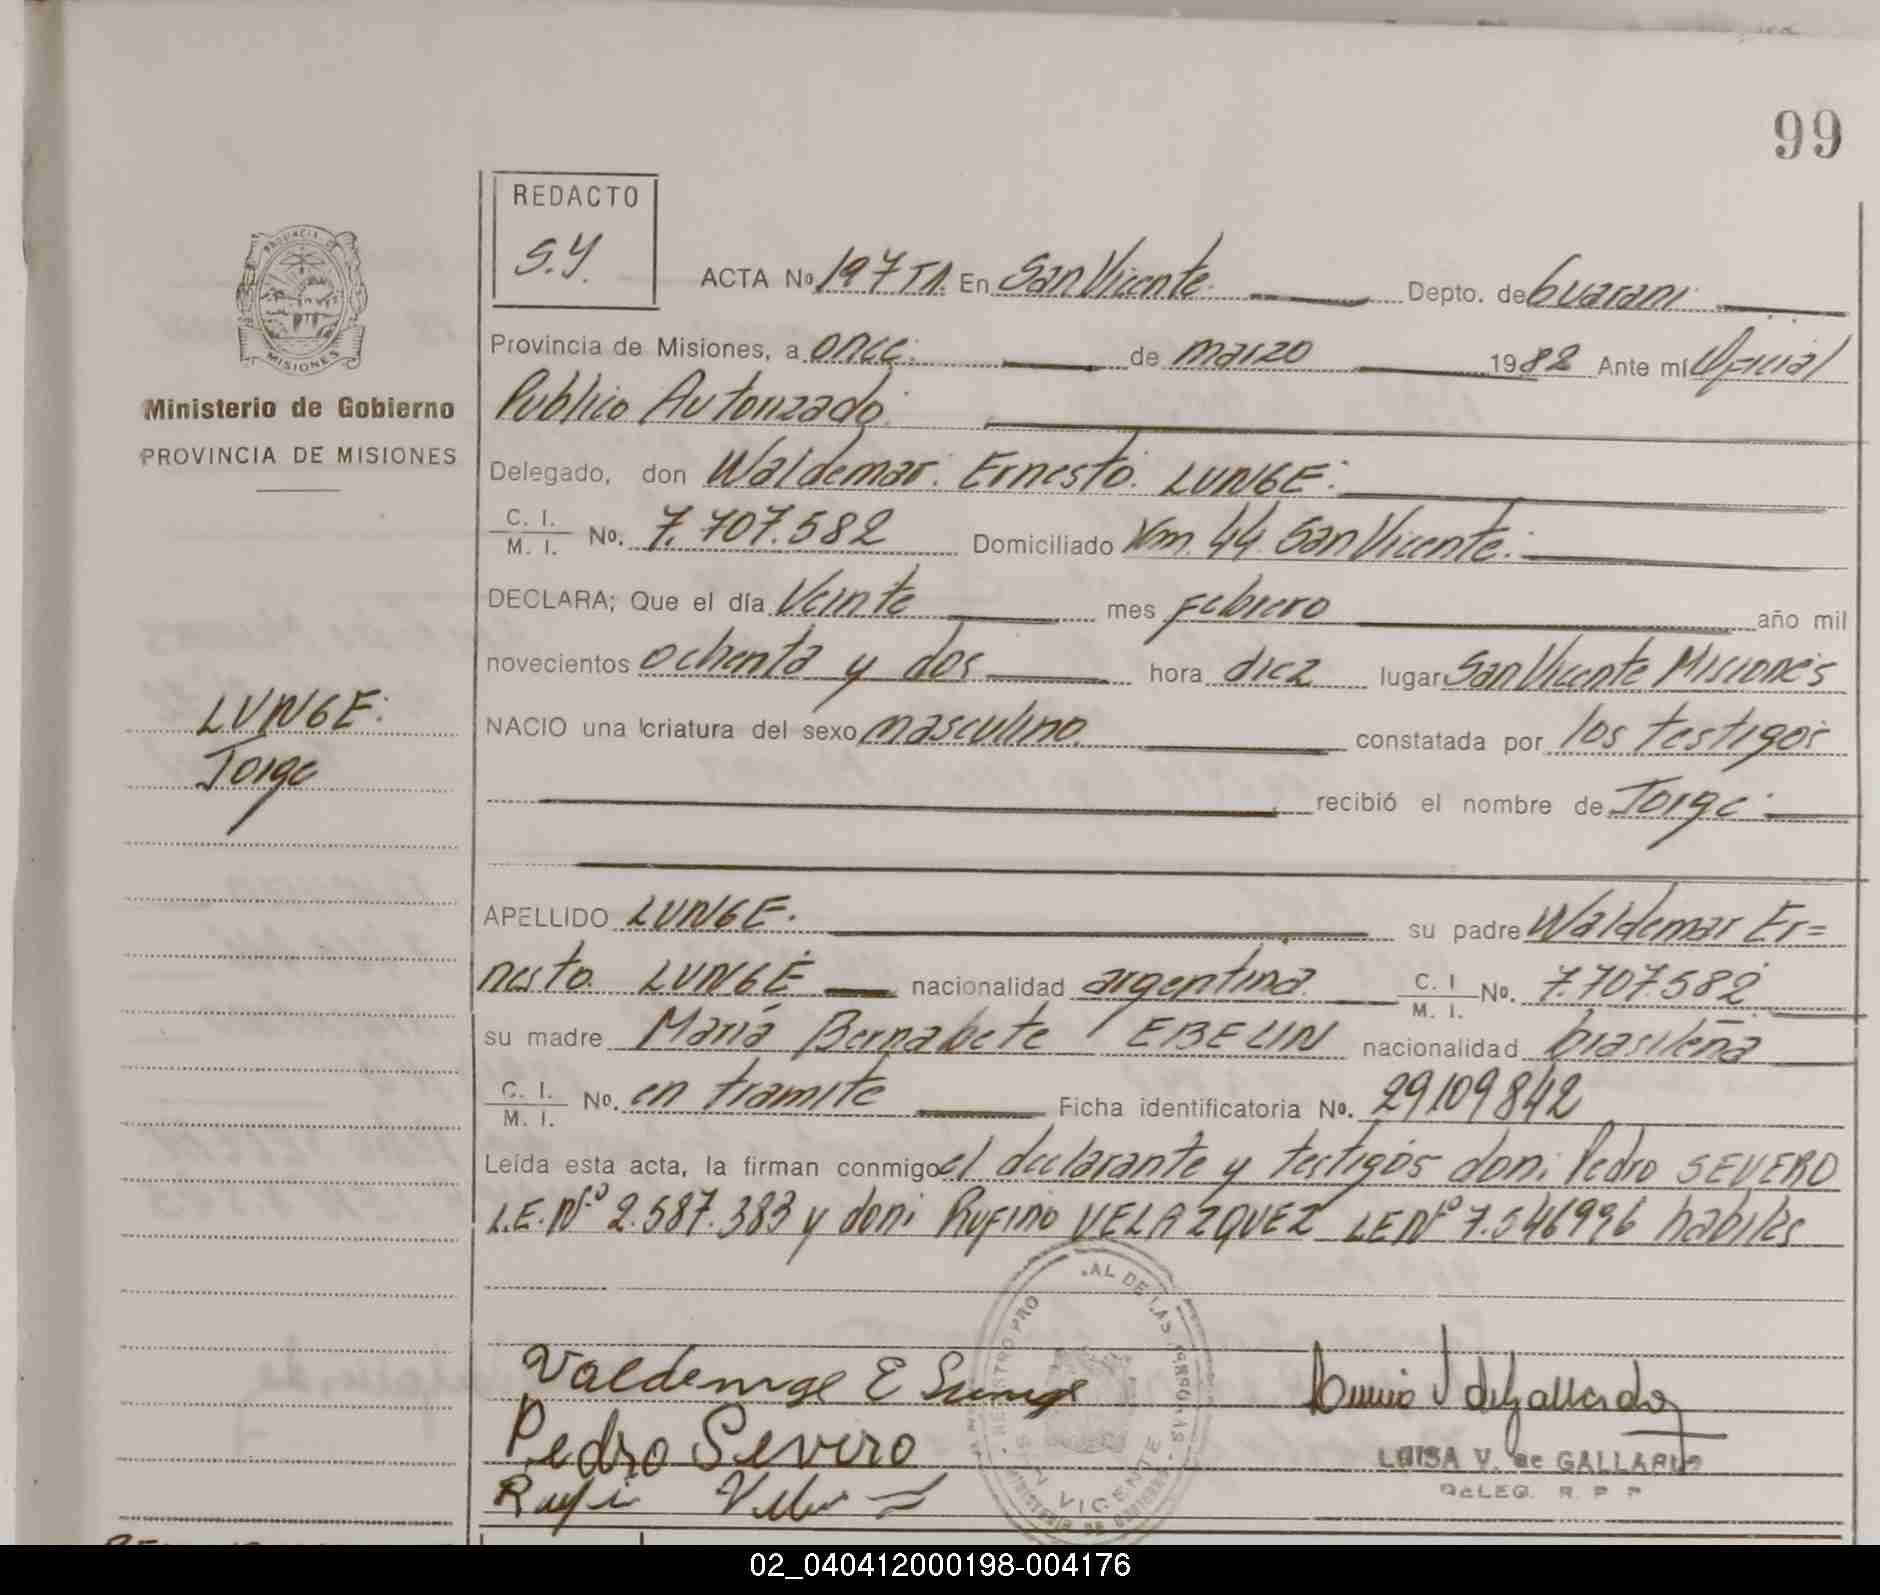 99
REDACTO
S.Y.
ACTA No 197 TA. En San Vicente Depto. de Guaraní
Provincia de Misiones, a once de marzo 1982 Ante mí Oficial
Público Autorizado
Delegado, don Waldemar Ernesto LUNGE
C. I.
M. I. No. 7.707.582 Domiciliado Km. 44 San Vicente
DECLARA; Que el día Veinte mes Febrero año mil
novecientos ochenta y dos hora diez lugar San Vicente Misiones
NACIO una criatura del sexo masculino constatada por los testigos
recibió el nombre de Jorge
APELLIDO LUNGE. su padre Waldemar Er=
nesto LUNGE nacionalidad argentina C. I
M. I. No. 7.707.582
su madre María Bernabete EBELIN nacionalidad brasileña
C. I.
M. I. No. en tramite Ficha identificatoria No. 29109842
Leída esta acta, la firman conmigo el declarante y testigos don: Pedro SEVERO
L.E. Nº 2.587.383 y don: Rufino VELAZQUEZ LE Nº 7.546996 habiles
PROVINCIA DE
MISIONES
Ministerio de Gobierno
PROVINCIA DE MISIONES
LUNGE:
Jorge
Pedro Severo
LUISA V. de GALLARDO
DELEG. R. P. P
VICENTE
02_040412000198-004176